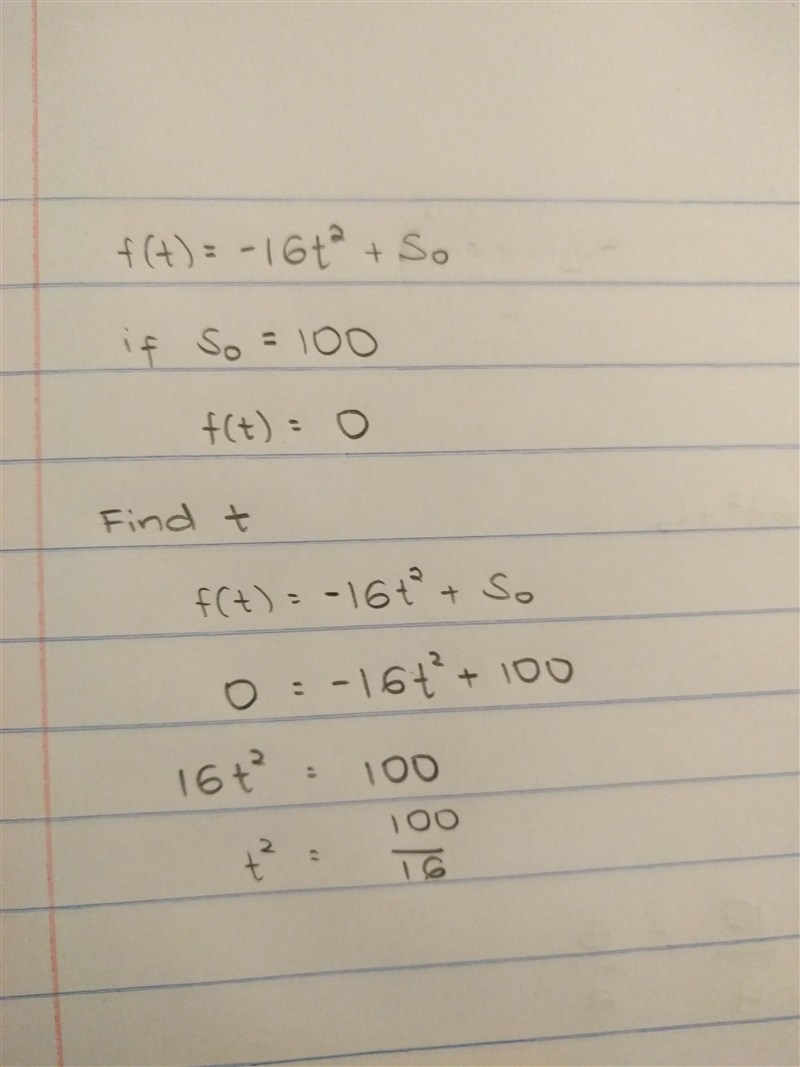 f(t) = -16t² + S₀
if S₀ = 100
f(t) = 0
Find t
f(t) = -16t² + S₀
0 = -16t² + 100
16t² = 100
t² = 100/16